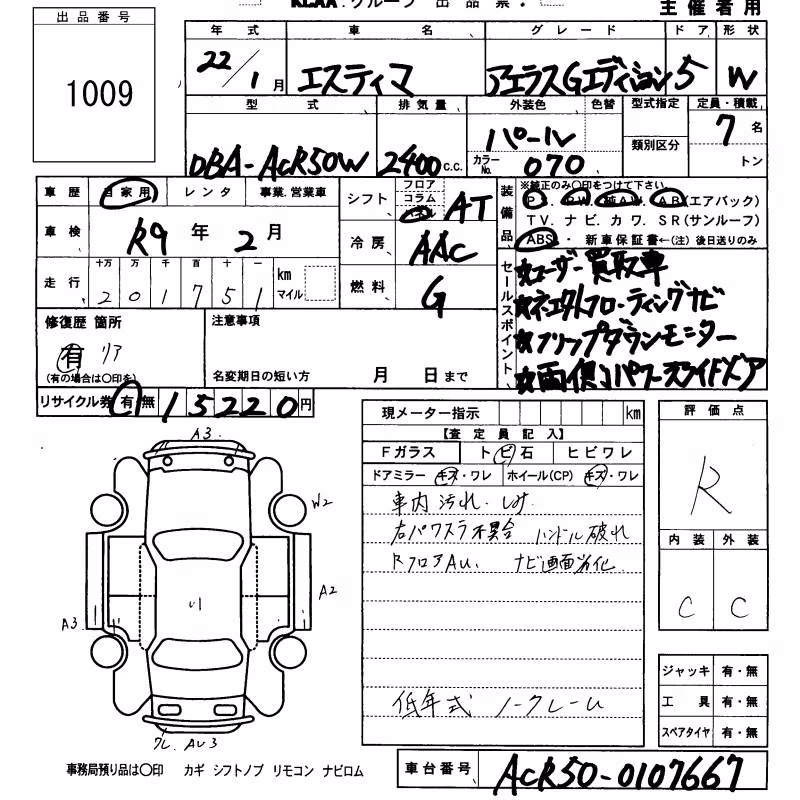 KCAA.グループ 出品票.
主催者用
出品番号
1009
年式 車名 グレード ドア 形状
22/1月 エスティマ アエラスGエディション 5 W
型式 排気量 外装色 色替 型式指定 定員・積載
類別区分
DBA-ACR50W 2400c.c. パール 7名
カラーNo. 070 トン
車歴 自家用 レンタ 事業.営業車
車検 R9年2月
走行 十万 万 千 百 十 一
201751 km マイル
シフト フロア コラム AT
冷房 AAC
燃料 G
装備品 ※純正のみ〇印をつけて下さい
P.S. P.W. 純A.W. A.B(エアバッグ)
TV. ナビ. カワ. SR(サンルーフ)
ABS.・新車保証書←(注)後日送りのみ
セールスポイント
☆ユーザー買取車
☆ネエクスフローティングナビ
☆フリップダウンモニター
☆両側パワースライドドア
修復歴 箇所
有 リア
(有の場合は〇印を)
注意事項
名変期日の短い方 月 日まで
リサイクル券 有 無 15220円
現メーター指示 km
【査定員記入】
Fガラス トビ石 ヒビワレ
ドアミラー キズ・ワレ ホイール(CP) キズ・ワレ
車内汚れ.しみ
右パワスラ不具合 ハンドル破れ
RフロアAU. ナビ画面劣化
低年式 ノークレーム
評価点
R
内装 外装
C C
ジャッキ 有・無
工具 有・無
スペアタイヤ 有・無
A3
W2
A2
A3
ワレ.AU3
事務局預り品は〇印 カギ シフトノブ リモコン ナビロム
車台番号 ACR50-0107667